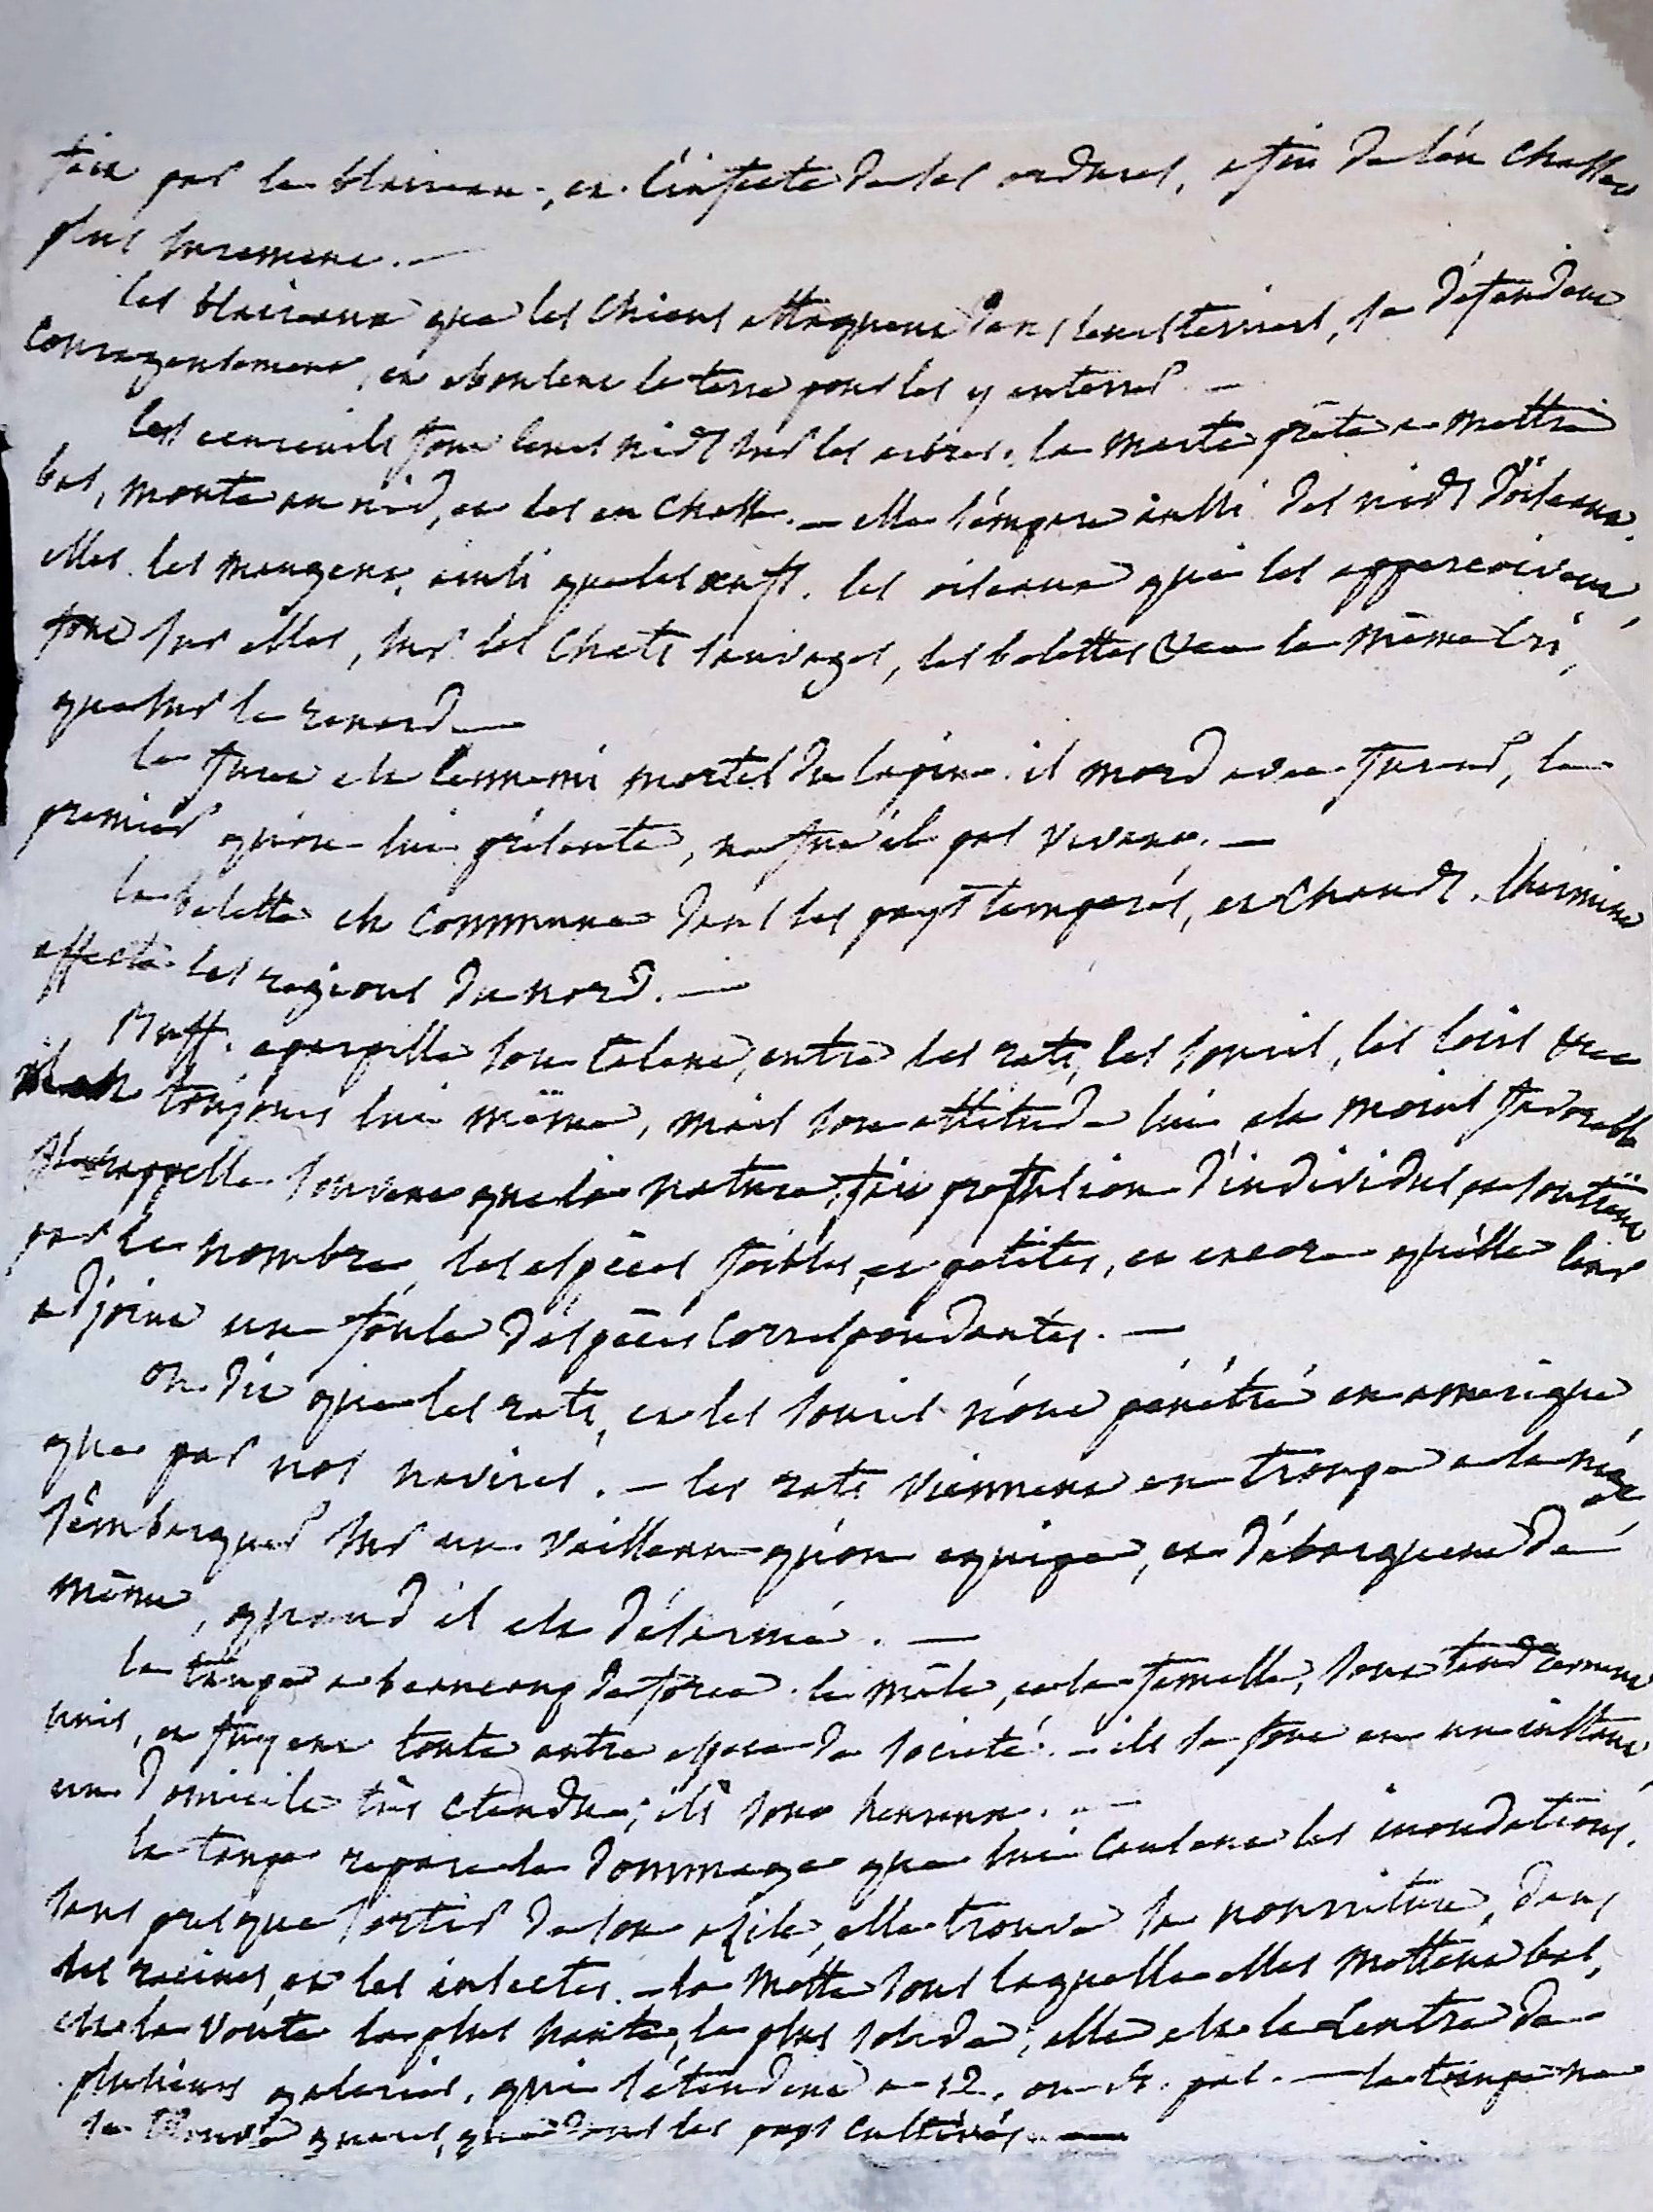 fait par le blaireau, et l'infecte de ses ordures, afin de l'en chasser
plus surement. —
les blaireaux que les chiens attaquent dans leurs terriers, se défendent
courageusement, et eboulent la terre pour les y enterrer. —
les ecureuils font leurs nids sur les arbres. la marte prête a mettre
bas, monte au nid, et les en chasse. — elle s'empare aussi des nids d'oiseaux.
elles les mangent, ainsi que les œufs. les oiseaux qui les appercoivent,
font sur elles, sur les chats sauvages, les belettes &ca le même cri,
que sur le renard —
le furet est l'ennemi mortel du lapin. il mord avec fureur, le
premier qu'on lui présente, ne fut il pas vivant. —
la belette est commune dans les pays temperés, et chauds. l'hermine
affecte les regions du nord. —
Buff. eparpille son talent, entre les rats, les souris, les loirs &ca
il est toujours lui même, mais son attitude lui est moins favorable
il rappelle souvent que la nature, fait profusion d'individus et soutient
par le nombre, les espèces foibles, et petites, et encore qu'elle leur
adjoint une foule d'espèces correspondantes. —
on dit que les rats, et les souris n'ont pénétré en amerique
que par nos navires. — les rats viennent en troupe a la nage
s'embarquer sur un vaisseau qu'on equipe, et débarquent de
même, quand il est désarmé. —
la taupe a beaucoup de force. le mâle, et la femelle, sont tendrement
unis, et fuyent toute autre espece de societé. — ils se font en un instant
un domicile très etendu; ils sont heureux. —
la taupe repare le dommage que lui causent les inondations.
sans presque sortir de son asile, elle trouve sa nourriture, dans
les racines, et les insectes. — la motte sous laquelle elles mettent bas,
est la voute la plus haute, la plus solide; elle est le centre de
plusieurs galeries, qui s'étendent a 12, ou pas. — la taupe ne
se trouve gueres, que dans les pays cultivés. —